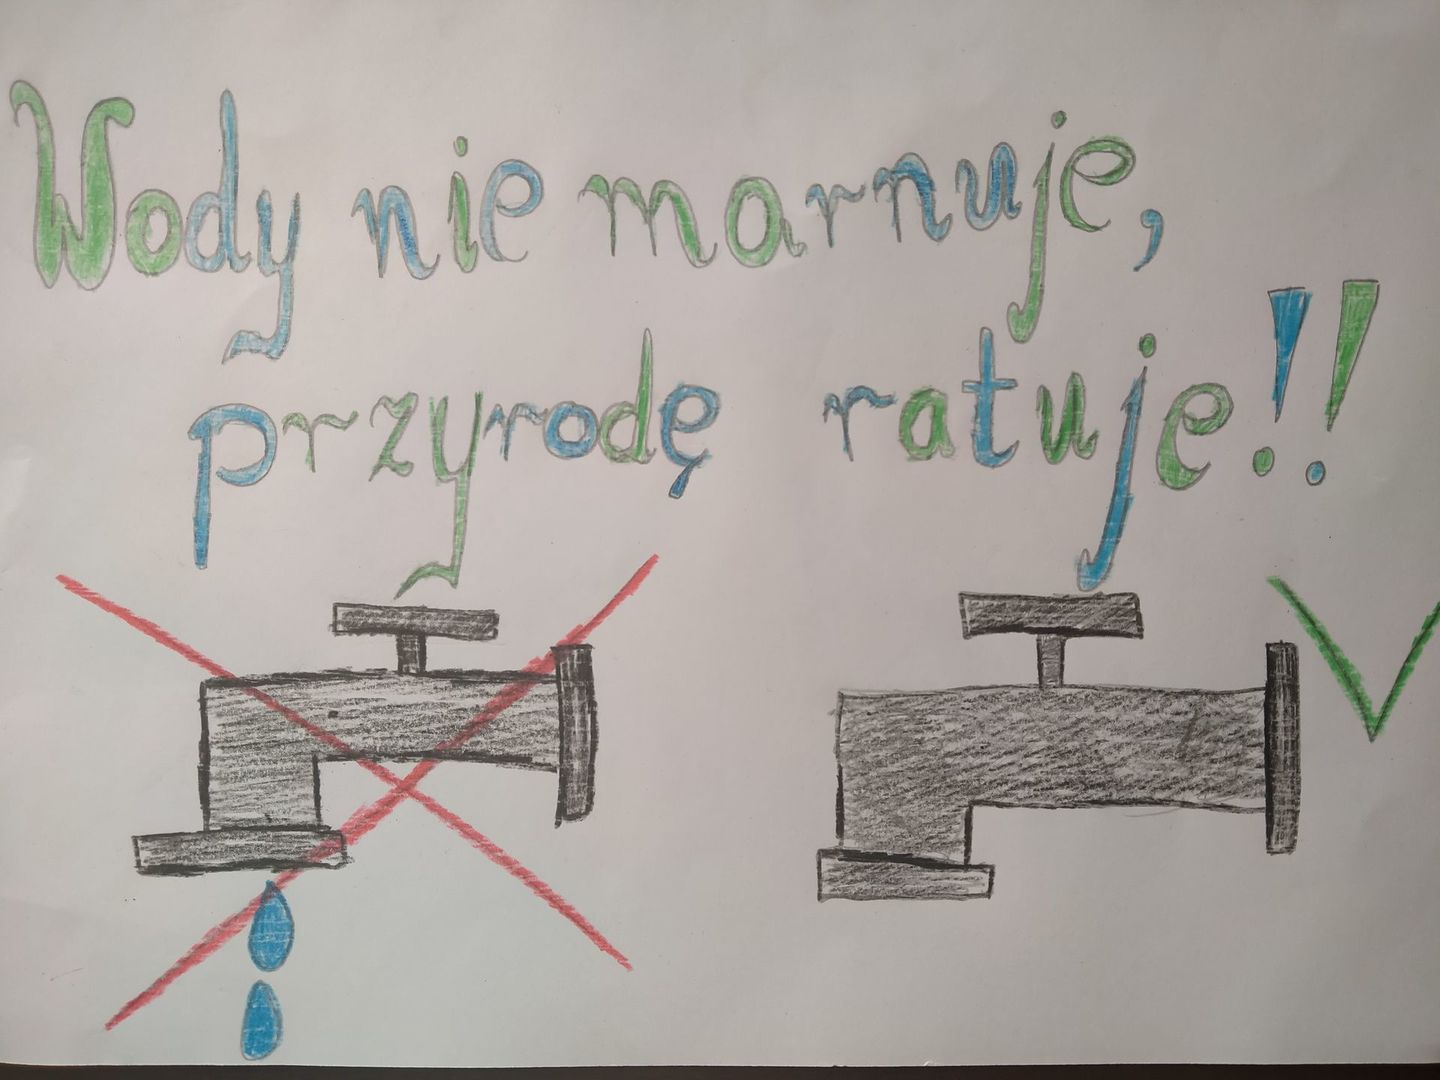 Wody nie marnuje,
przyrodę ratuje!!